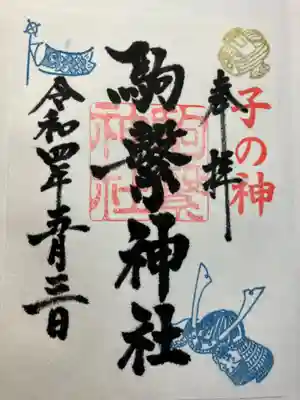 子の神
奉拝
駒繋神社
駒繋
神社
令和四年五月三日